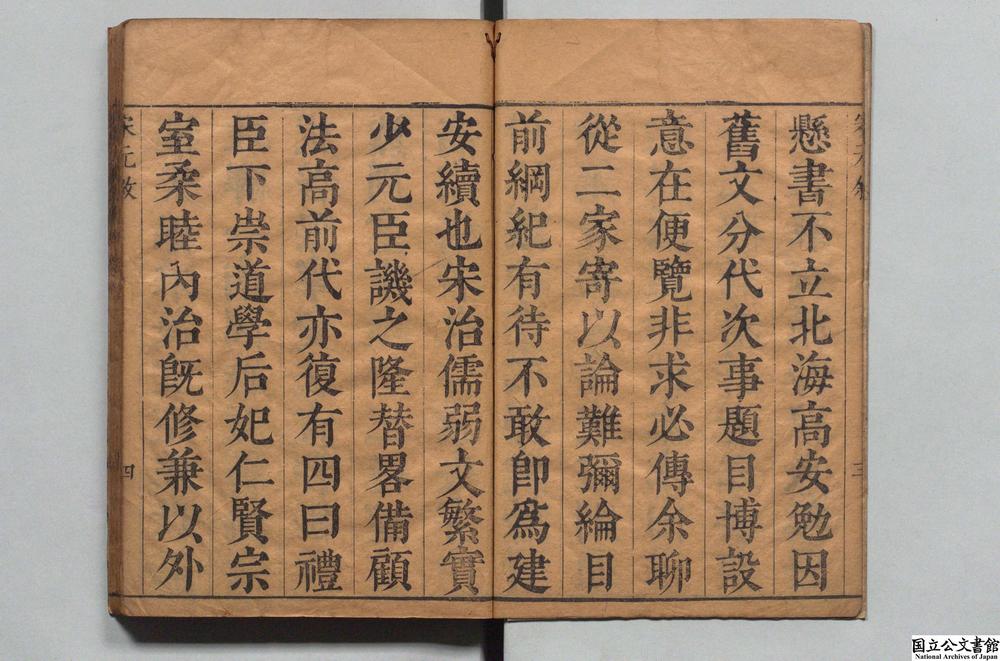 懸書不立北海高安勉因
舊文分代次事題目博設
意在便覽非求必傳余聊
從二家寄以論難彌綸目
前綱紀有待不敢卽爲建
安續也宋治儒弱文繁實
少元臣譏之隆替畧備顧
法高前代亦復有四曰禮
臣下崇道學后妃仁賢宗
室柔睦內治旣修兼以外
宋元敘
三
宋元敘
四
国立公文書館
National Archives of Japan